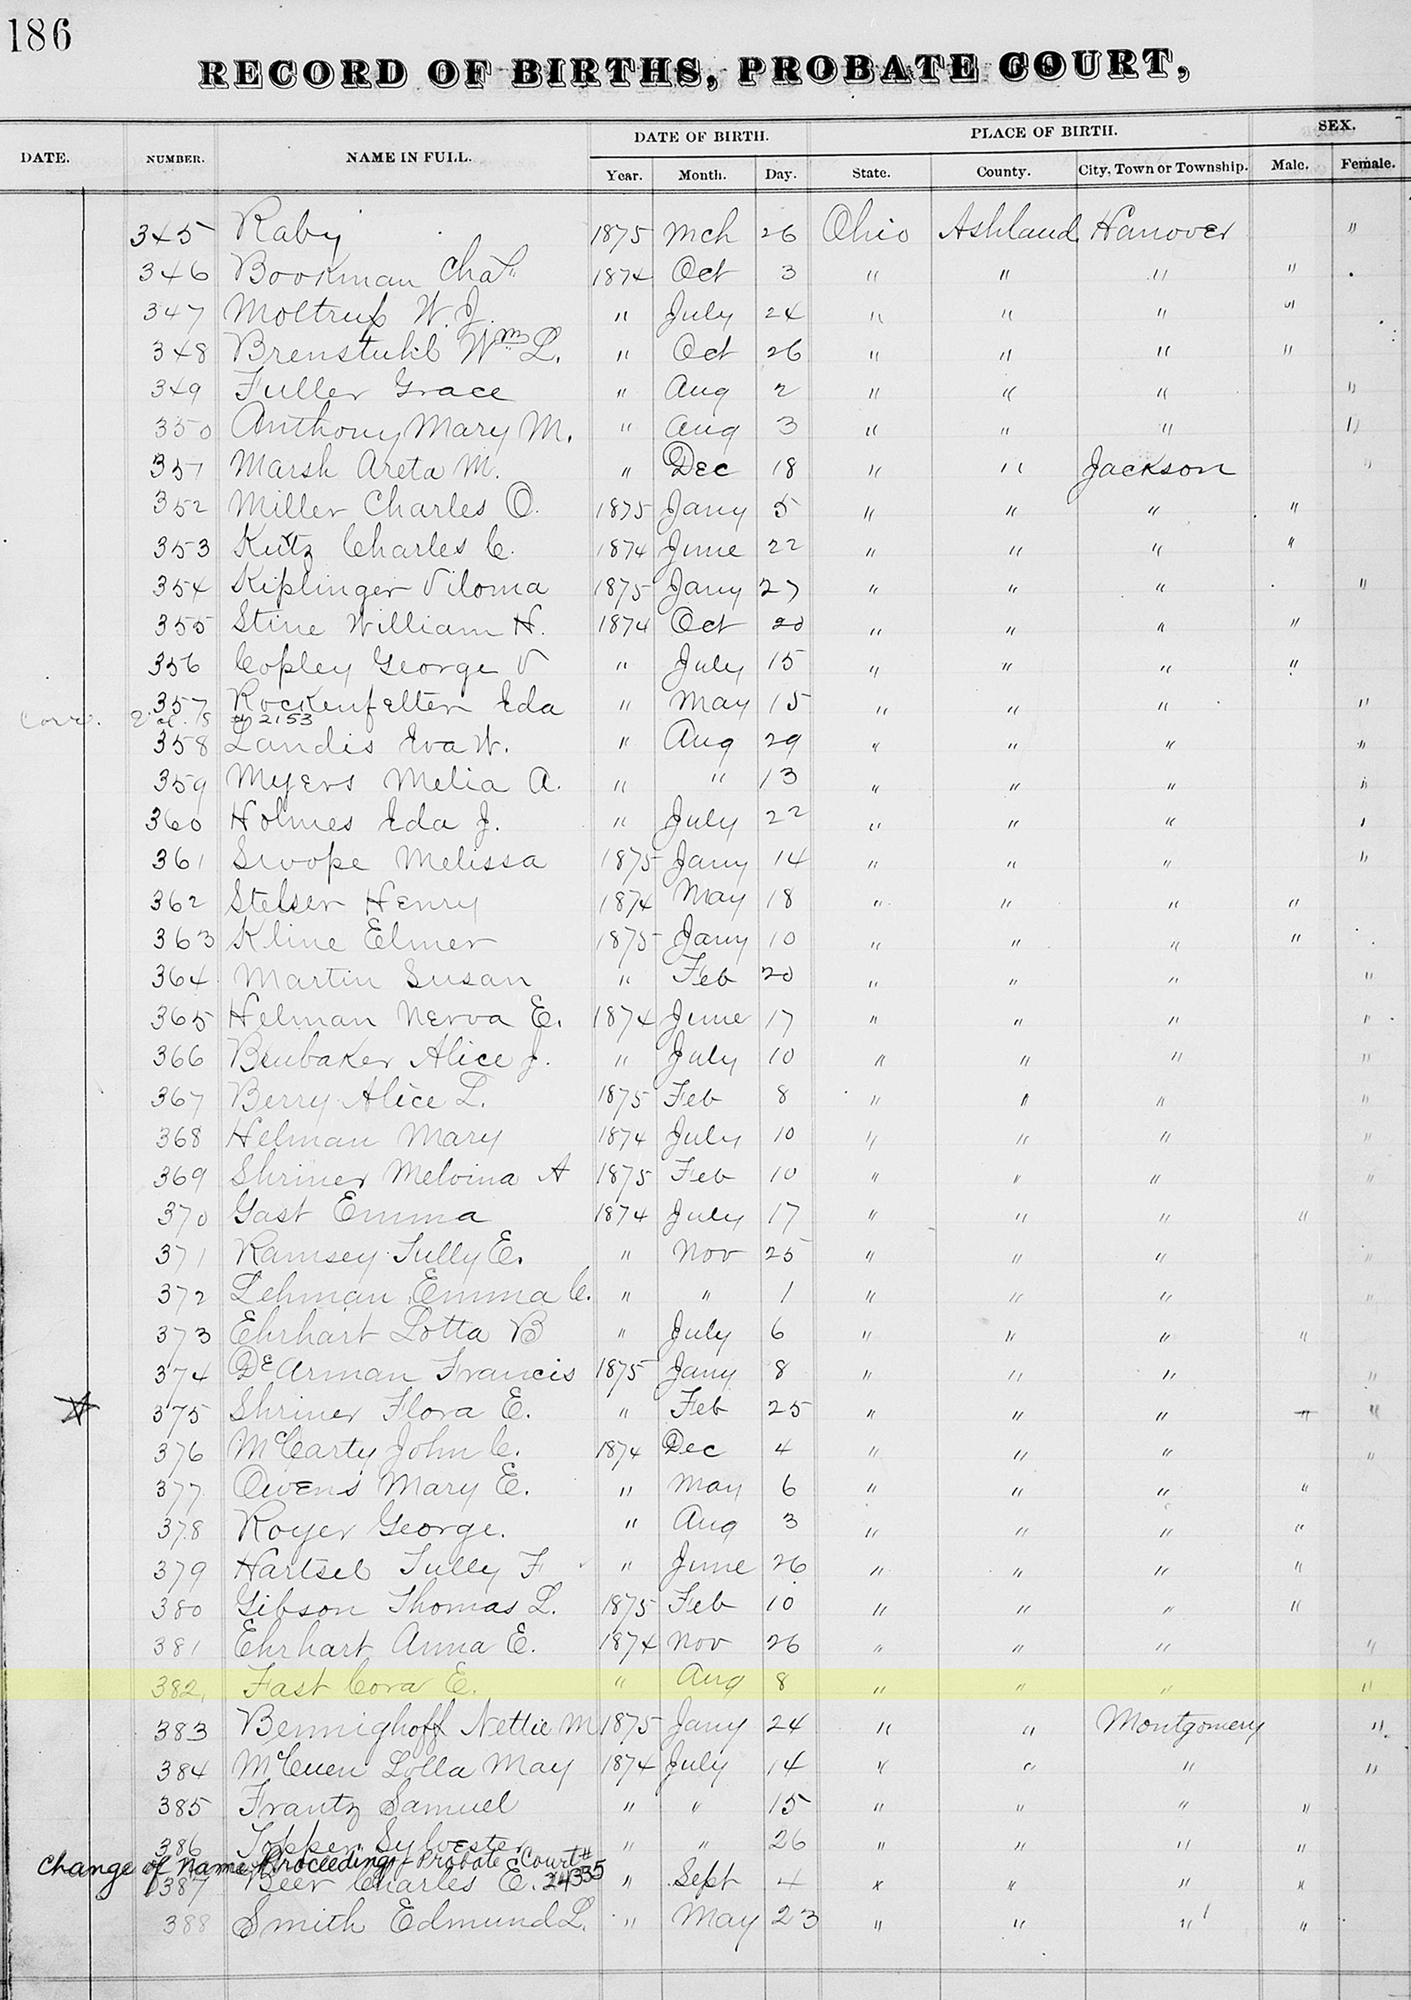 186
RECORD OF BIRTHS, PROBATE COURT,
DATE. NUMBER. NAME IN FULL. DATE OF BIRTH. PLACE OF BIRTH. SEX.
Year. Month. Day. State. County. City, Town or Township. Male. Female.
345 Raby 1875 Mch 26 Ohio Ashland Hanover "
346 Bookman Chas 1874 Oct 3 " " " "
347 Moltrup W. J. " July 24 " " " "
348 Brenstuhl Wm L. " Oct 26 " " " "
349 Fuller Grace " Aug 2 " " " "
350 Anthony Mary M. " Aug 3 " " " "
351 Marsh Areta M. " Dec 18 " " Jackson "
352 Miller Charles O. 1875 Jany 5 " " " "
353 Kutz Charles C. 1874 June 22 " " " "
354 Kiplinger Viloma 1875 Jany 27 " " " "
355 Stine William H. 1874 Oct 20 " " " "
356 Copley George V " July 15 " " " "
357 Rockenfelter Eda " May 15 " " " "
Corr. 2153
358 Landis Eva W. " Aug 29 " " " "
359 Myers Melia A. " " 13 " " " "
360 Holmes Eda J. " July 22 " " " "
361 Swope Melissa 1875 Jany 14 " " " "
362 Stelser Henry 1874 May 18 " " " "
363 Kline Elmer 1875 Jany 10 " " " "
364 Martin Susan " Feb 20 " " " "
365 Helman Nerva E. 1874 June 17 " " " "
366 Brubaker Alice J. " July 10 " " " "
367 Berry Alice L. 1875 Feb 8 " " " "
368 Helman Mary 1874 July 10 " " " "
369 Shriner Melvina A 1875 Feb 10 " " " "
370 Gast Emma 1874 July 17 " " " "
371 Ramsey Tully E. " Nov 25 " " " "
372 Lehman Emma C. " " 1 " " " "
373 Ehrhart Lotta B " July 6 " " " "
374 DeArman Francis 1875 Jany 8 " " " "
375 Shriner Flora E. " Feb 25 " " " " "
376 McCarty John C. 1874 Dec 4 " " " "
377 Owens Mary E. " May 6 " " " "
378 Royer George. " Aug 3 " " " "
379 Hartsel Tully F " June 26 " " " "
380 Gibson Thomas L. 1875 Feb 10 " " " "
381 Ehrhart Anna E. 1874 Nov 26 " " " "
382 Fast Cora E. " Aug 8 " " " "
383 Bennighoff Nettie M 1875 Jany 24 " " Montgomery "
384 McCuen Lolla May 1874 July 14 " " " "
385 Frantz Samuel " " 15 " " " "
386 Topper Sylvester " " 26 " " " "
Change of Name Proceeding - Probate Court # 24335
387 Beer Charles E. " Sept 4 " " " "
388 Smith Edmund L. " May 23 " " " "